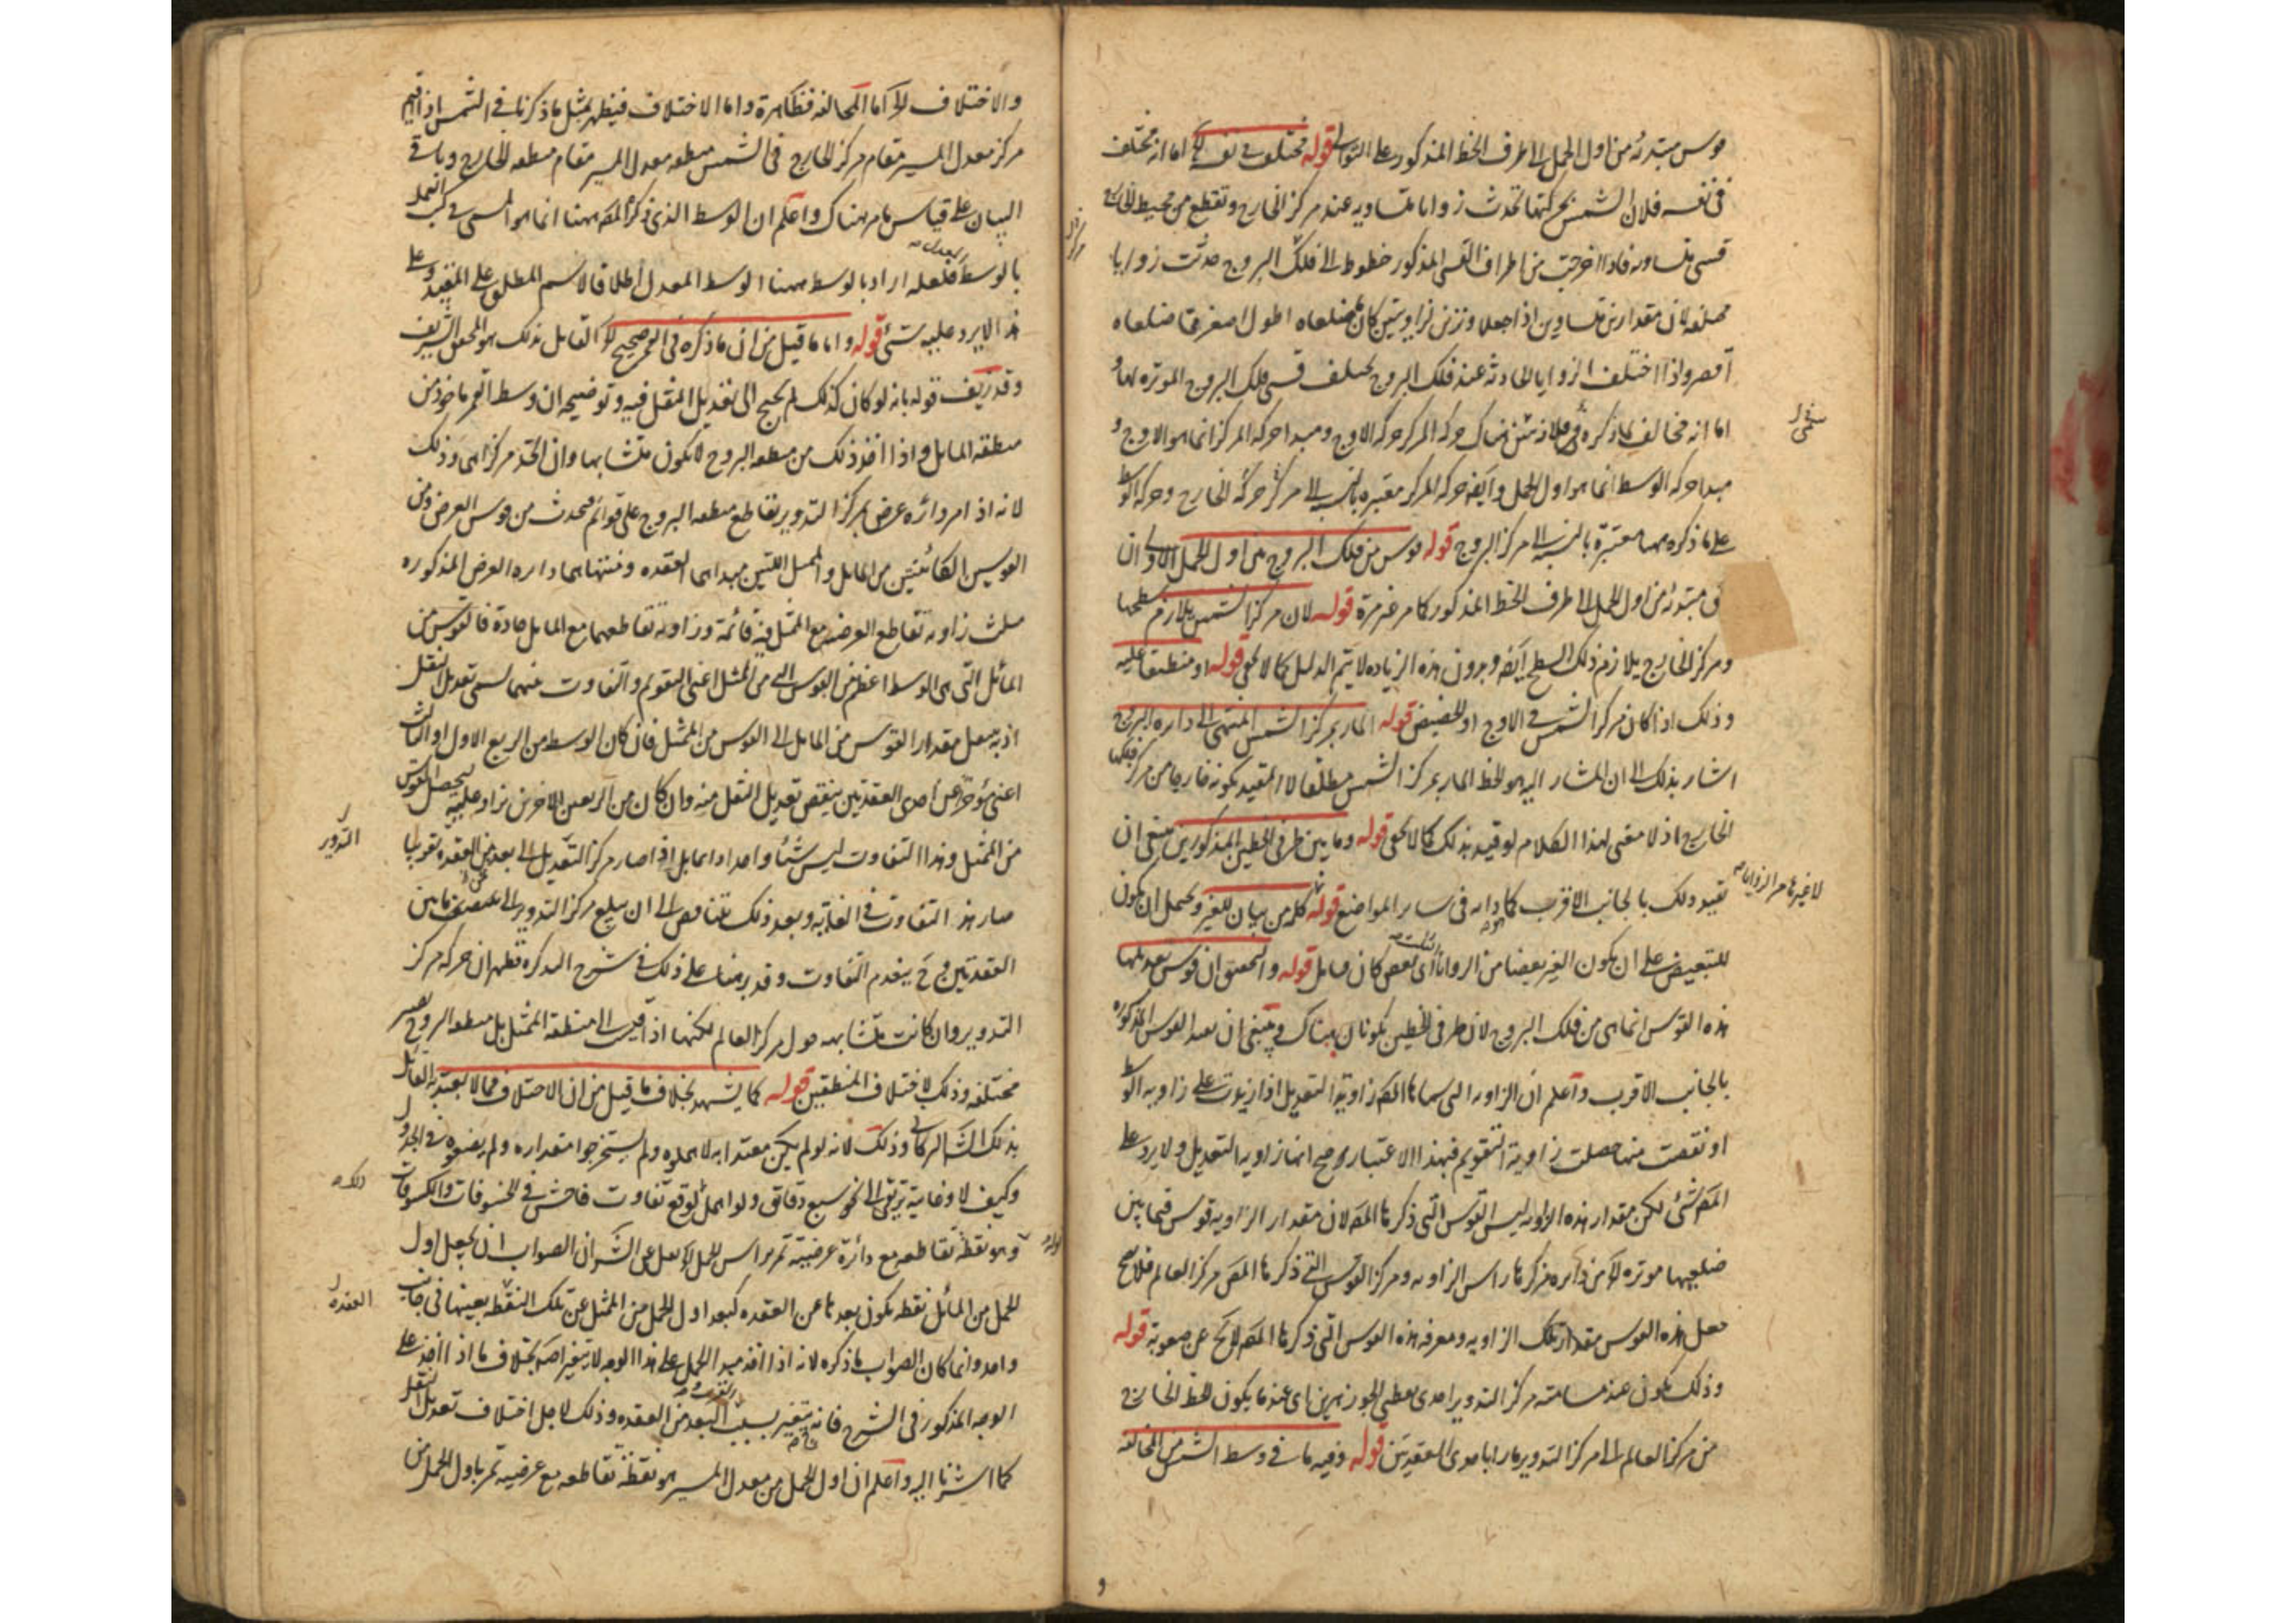 قوس مبتدئه من اول الحمل الى طرف الخط المذكور على التوالى قوله مختلف فى نفسه اما انه مختلف
فى نفسه فلان الشمس بحركتها تحدث زوايا متساويه عند مركز الخارج وتقطع من محيط الخارج
قسى متساويه فاذا اخرجت من اطراف القسى المذكور خطوط الى فلك البروج حدثت زوايا
مختلفه لان مقدارين متساويين اذا جعلا وترين لزاويتين كان ما ضلعاه اطول اصغر مما ضلعاه
اقصر واذا اختلف الزوايا الحادثه عند فلك البروج يختلف قسى فلك البروج الموتره لها و
اما انه مخالف لما ذكره فلان هناك حركه المركز حركه الاوج ومبدا حركه المركز انما هو الاوج و
مبدا حركه الوسط انما هو اول الحمل وايضا حركه المركز معتبره بالنسبه الى مركز حركه الخارج وحركه الوسط
على ما ذكره ههنا معتبرة بالنسبه الى مركز البروج قوله قوس من فلك البروج من اول الحمل الاولى ان
مبتدئه من اول الحمل الى طرف الخط المذكور كما مر غير مرة قوله لان مركز الشمس يلازم سطحها
ومركز الخارج يلازم ذلك السطح ايضا وبدون هذه الزياده لا يتم الدليل كما لا يخفى قوله او منطبقا عليه
وذلك اذا كان مركز الشمس فى الاوج او الحضيض قوله المار بمركز الشمس المنتهى الى دايره البروج
اشار بذلك الى ان المشار اليه هو الخط المار بمركز الشمس مطلقا لا المقيد بكونه خارجا من مركز فلكها
الخارج اذ لا معنى لهذا الكلام لو قيد بذلك كما لا يخفى قوله وما بين طرفى الخطين المذكورين ينبغى ان
تقييد ذلك بالجانب الاقرب كما دابه فى ساير المواضع قوله كله من بيان للغير ويحتمل ان يكون
لا غيرها من الزوايا
للتبعيض على ان يكون الغير بعضا من الزوايا اى بعض كان قوله والتحقيق ان قوس تعديلها
هذه القوس انما هى من فلك البروج لان طرفى الخطين يكونان هناك وينبغى ان القوس المذكوره
بالجانب الاقرب واعلم ان الزاويه التى سماها المص زاوية التعديل اذا زيدت على زاويه الوسط
او نقصت منها حصلت زاوية التقويم فبهذا الاعتبار صح انها زاويه التعديل ولا يرد على
المص شئ لكن مقدار هذه الزاويه ليس القوس التى ذكرها المص لان مقدار الزاويه قوس فيما بين
ضلعيها موتره لها من دايره مركزها راس الزاويه ومركز القوس التى ذكرها المص مركز العالم فلا يصح
جعل هذه القوس مقدار تلك الزاويه ومعرفه هذه القوس التى ذكرها المص لا يخ عن صعوبة قوله
وذلك يكون عند مسامته مركز التدوير احدى نقطتى الجوزهرين اى عند ما يكون الخط الخارج
من مركز العالم الى مركز التدوير مارا باحدى العقدتين قوله وفيه ما فى وسط الشمس من المخالفه
والاختلاف اما المخالفه فظاهرة واما الاختلاف فيظهر بمثل ما ذكرنا فى الشمس اذ اقيم
مركز معدل المسير مقام مركز الخارج فى الشمس ومنطقه معدل المسير مقام منطقه الخارج وباقى
البيان على قياس ما مر هناك واعلم ان الوسط الذى ذكره المص ههنا انما هو المسمى فى كتب العمل
بالوسط المعدل فلعله اراد بالوسط ههنا الوسط المعدل اطلاقا لاسم المطلق على المقيد وعلى
هذا لا يرد عليه شئ قوله واما ما قيل من ان ما ذكره فى القمر صحيح القائل بذلك هو المحقق الشريف
وقد زيف قوله بانه لو كان كذلك لم يحتج الى تعديل النقل فيه وتوضيحه ان وسط القمر ماخوذ من
منطقه المايل واذا اخذ ذلك من منطقه البروج لا يكون متشابها وان اتحد مركزاهما وذلك
لانه اذا مر دائره عرض بمركز التدوير تقاطع منطقه البروج على قوائم فيحدث من قوس العرض ومن
القوسين الكائنتين من المايل والممثل اللتين مبداهما العقده ومنتهاهما دايره العرض المذكوره
مثلث زاويه تقاطع العرضيه مع الممثل فيه قائمة وزاويه تقاطعها مع المايل حادة فالقوس من
المائل التى هى الوسط اعظم من القوس التى من الممثل اعنى التقويم والتفاوت بينهما يسمى تعديل النقل
اذ به ينقل مقدار القوس من المايل الى القوس من الممثل فان كان الوسط من الربع الاول او الثالث
اعنى مؤخرا عن احدى العقدتين ينقص تعديل النقل منه وان كان من الربعين الاخرين يزاد عليه ليحصل القوس
من الممثل وهذا التفاوت ليس شيئا واحدا دائما بل اذا صار مركز التعديل الى بعد ثمن العقده تقريبا
التدوير
صار هذا التفاوت فى الغاية وبعد ذلك يتناقص الى ان يبلغ مركز التدوير الى منتصف ما بين
العقدتين وح ينعدم التفاوت وقد برهنا على ذلك فى شرح التذكره فظهر ان حركه مركز
التدوير وان كانت متشابهه حول مركز العالم لكنها اذا قيست الى منطقة الممثل بل منطقه البروج يصير
مختلفه وذلك لاختلاف المنطقتين قوله كما يشهد بخلاف ما قيل من ان الاختلاف مما لا يعتد به القائل
بذلك الشارح الكاشى وذلك لانه لو لم يكن معتدا به لاهملوه ولم يستخرجوا مقداره ولم يضعوه فى الجدول
وكيف لا وغايته ترتقى الى نحو سبع دقائق ولو اهمل لوقع تفاوت فاحش فى الخسوفات والكسوفات
وهو نقطة تقاطعه مع دائرة عرضيه تمر براس الحمل الصواب ان يجعل اول
الحمل من المائل نقطه يكون بعدها عن العقده كبعد اول الحمل من الممثل عن تلك النقطه بعينها فى جانب
العقده
واحد وانما كان الصواب ما ذكره لانه اذا اخذ مبدا الحمل على هذا الوجه لا يتغير اصلا بخلاف ما اذا اخذ على
الوجه المذكور فى الشرح فانه يتغير بسبب البعد من العقده وذلك لاجل اختلاف تعديل النقل
كما اشرنا اليه واعلم ان اول الحمل من معدل المسير هو نقطة تقاطعه مع عرضيه تمر باول الحمل من